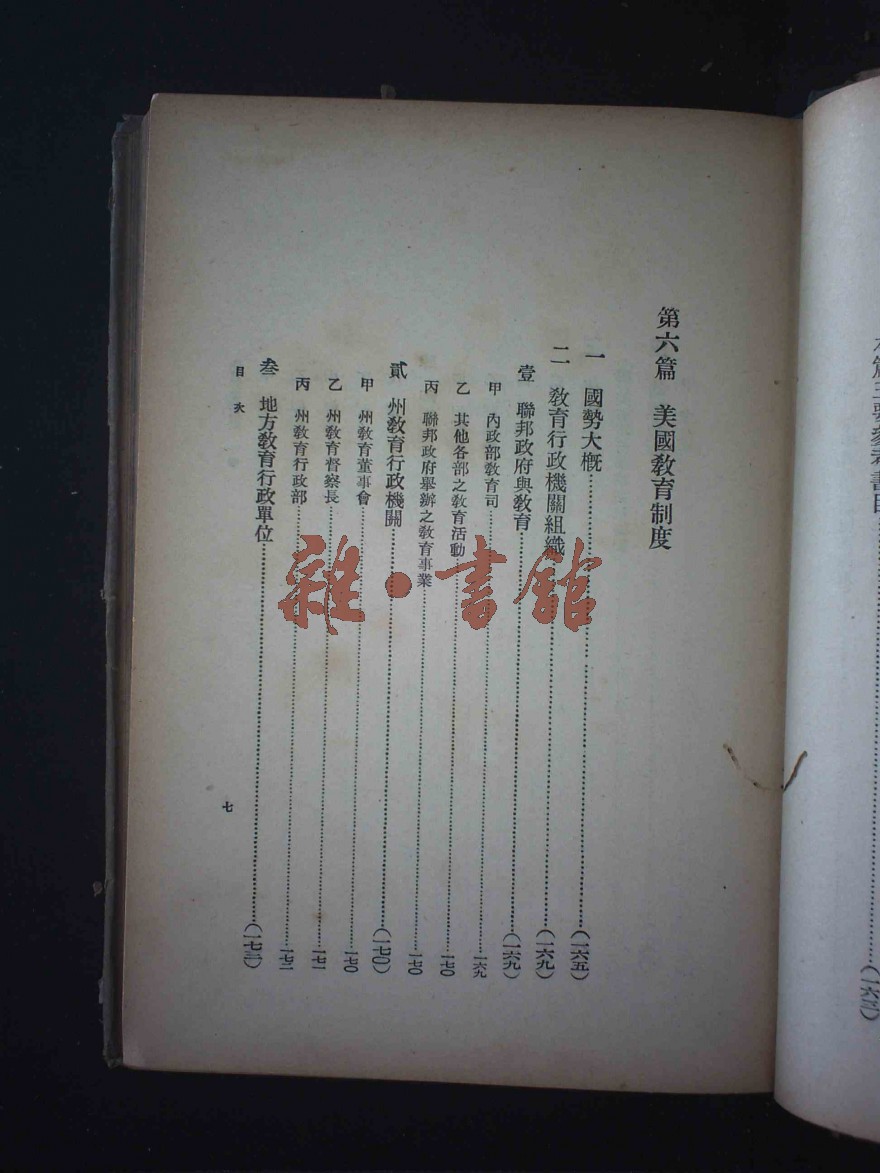 第六篇 美國教育制度
一 國勢大概……(一六五)
二 教育行政機關組織……(一六九)
壹 聯邦政府與教育……(一六九)
甲 內政部教育司……一六九
乙 其他各部之教育活動……一七〇
丙 聯邦政府舉辦之教育事業……一七〇
貳 州教育行政機關……(一七〇)
甲 州教育董事會……一七〇
乙 州教育督察長……一七一
丙 州教育行政部……一七二
叁 地方教育行政單位……(一七二)
目次
七
雜·書館